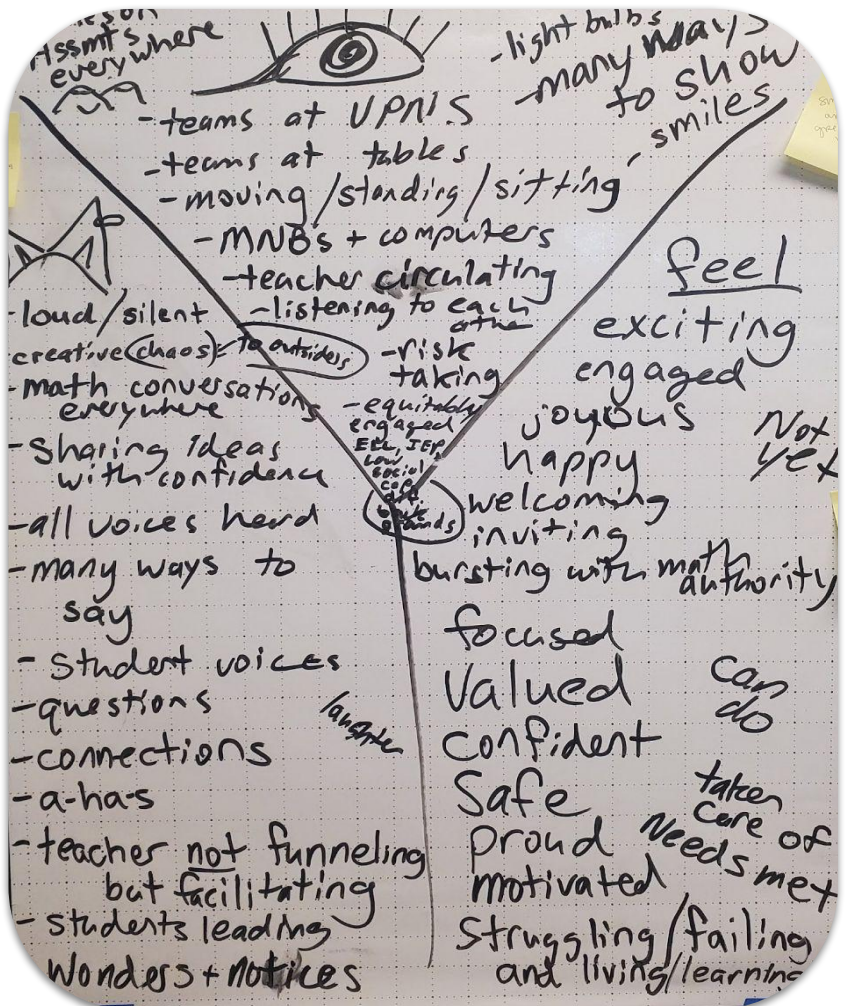 Assmts
everywhere
- light bulbs
- many ways
to show
- smiles
- teams at VPNTS
- teams at tables
- moving/standing/sitting
- MNBs + computers
- teacher circulating
- listening to each
other
- risk
taking
- equitably
engaged
ELL, IEP,
low
social
cap
- loud/silent
creative (chaos) = to outsiders
- math conversations
everywhere
- sharing ideas
with confidence
- all voices heard
- many ways to
say
- student voices
- questions
laughter
- connections
- a-ha-s
- teacher not funneling
but facilitating
- students leading
wonders + notices
feel
exciting
engaged
joyous
happy
Not
yet
welcoming
inviting
bursting with math
authority
focused
valued
can
do
confident
safe
proud
taken
care of
Needs met
motivated
struggling/failing
and living/learning